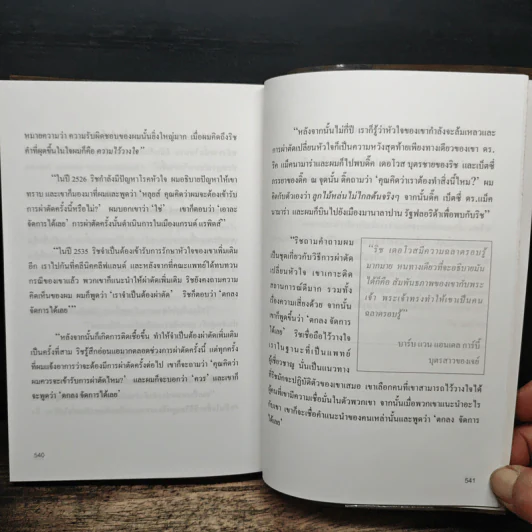 หมายความว่า ความรับผิดชอบของผมนั้นยิ่งใหญ่มาก เมื่อผมคิดถึงริช
คำที่ผุดขึ้นในใจผมก็คือ ความไว้วางใจ
“ในปี 2526 ริชกำลังมีปัญหาโรคหัวใจ ผมอธิบายปัญหาให้เขา
ทราบ และเขาก็มองมาที่ผมและพูดว่า ‘หลุยส์ คุณคิดว่าผมจะต้องเข้ารับ
การผ่าตัดครั้งนี้หรือไม่?’ ผมบอกเขาว่า ‘ใช่’ เขาก็ตอบว่า ‘เอาละ
จัดการได้เลย’ การผ่าตัดครั้งนั้นดำเนินการในเมืองแกรนด์ แรพิดส์”
“ในปี 2535 ริชจำเป็นต้องเข้ารับการรักษาหัวใจของเขาเพิ่มเติม
อีก เราไปกันที่คลีนิคคลีฟแลนด์ และหลังจากที่คณะแพทย์ได้ทบทวน
กรณีของเขาแล้ว พวกเขาก็แนะนำให้ผ่าตัดเพิ่มเติม ริชยังคงถามความ
คิดเห็นของผม ผมก็พูดว่า ‘เราจำเป็นต้องผ่าตัด’ ริชก็ตอบว่า ‘ตกลง
จัดการได้เลย’”
“หลังจากนั้นก็เกิดการติดเชื้อขึ้น ทำให้จำเป็นต้องผ่าตัดเพิ่มเติม
เป็นครั้งที่สาม ริชรู้สึกอ่อนแอมากตลอดช่วงการผ่าตัดครั้งนี้ แต่ทุกครั้ง
ที่ผมแจ้งอาการว่าจะต้องมีการผ่าตัดครั้งต่อไป เขาก็จะถามว่า ‘คุณคิดว่า
ผมควรจะเข้ารับการผ่าตัดไหม?’ และผมก็จะบอกว่า ‘ควร’ และเขาก็
จะพูดว่า ‘ตกลง จัดการได้เลย’
540
“หลังจากนั้นไม่กี่ปี เราก็รู้ว่าหัวใจของเขากำลังจะล้มเหลวและ
การผ่าตัดเปลี่ยนหัวใจ ก็เป็นความหวังสุดท้ายเพียงทางเดียวของเขา ดร.
ริค แม็คนามาร่าและผมก็ไปพบดิ๊ก เดอโวส บุตรชายของริช และเบ็ตซี่
ภรรยาของดิ๊ก ณ จุดนั้น ดิ๊กถามว่า ‘คุณคิดว่าเราต้องทำสิ่งนี้ไหม?’ ผม
คิดกับตัวเองว่า ลูกไม้หล่นไม่ไกลต้นจริงๆ จากนั้นดิ๊ก เบ็ตซี่ ดร.แม็ค
นามาร่า และผมก็บินไปยังเมืองมานาลาปาน รัฐฟลอริด้าเพื่อพบกับริช”
“ริชถามคำถามผม
เป็นชุดเกี่ยวกับวิธีการผ่าตัด
เปลี่ยนหัวใจ เขาเกาะติด
สถานการณ์ดีมาก รวมทั้ง
เรื่องความเสี่ยงด้วย จากนั้น
เขาก็พูดขึ้นว่า ‘ตกลง จัดการ
ได้เลย’ ริชเชื่อถือไว้วางใจ
เราในฐานะที่เป็นแพทย์
ผู้เชี่ยวชาญ นั่นเป็นแนวทาง
ที่ริชมักจะปฏิบัติตัวของเขาเสมอ เขาเลือกคนที่เขาสามารถไว้วางใจได้
ผู้คนที่เขามีความเชื่อมั่นในตัวพวกเขา จากนั้นเมื่อพวกเขาแนะนำอะไร
กับเขา เขาก็จะเชื่อคำแนะนำของคนเหล่านั้นและพูดว่า ‘ตกลง จัดการ
ได้เลย’
“ริช เดอโวสมีความฉลาดรอบรู้
มากมาย หนทางเดียวที่จะอธิบายมัน
ได้ก็คือ สัมพันธภาพของเขากับพระ
เจ้า พระเจ้าทรงทำให้เขาเป็นคน
ฉลาดรอบรู้”
บาร์บ แวน แอนเดล การ์บี้
บุตรสาวของเจย์
541